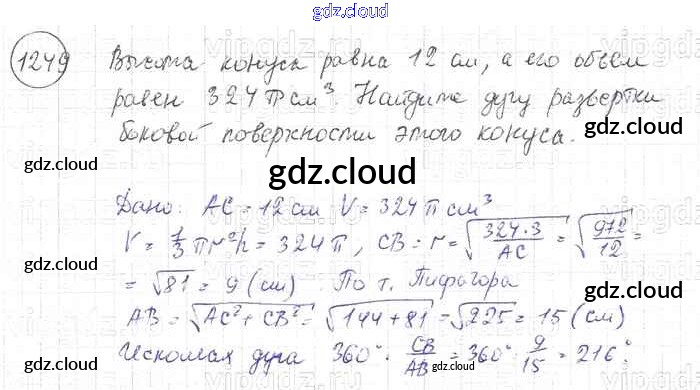 gdz.cloud
1249 Высота конуса равна 12 см, а его объем
равен 324π см³. Найдите дугу развертки
боковой поверхности этого конуса.
gdz.cloud
gdz.cloud
gdz.cloud
Дано: AC = 12 см V = 324π см³
V = 1/3 πr²h = 324π, CB = r = √(324·3/AC) = √(972/12) =
gdz.cloud
= √81 = 9 (см). По т. Пифагора
gdz.cloud
AB = √(AC² + CB²) = √(144 + 81) = √225 = 15 (см)
Искомая дуга 360° · CB/AB = 360° · 9/15 = 216°.
gdz.cloud
gdz.cloud
gdz.cloud